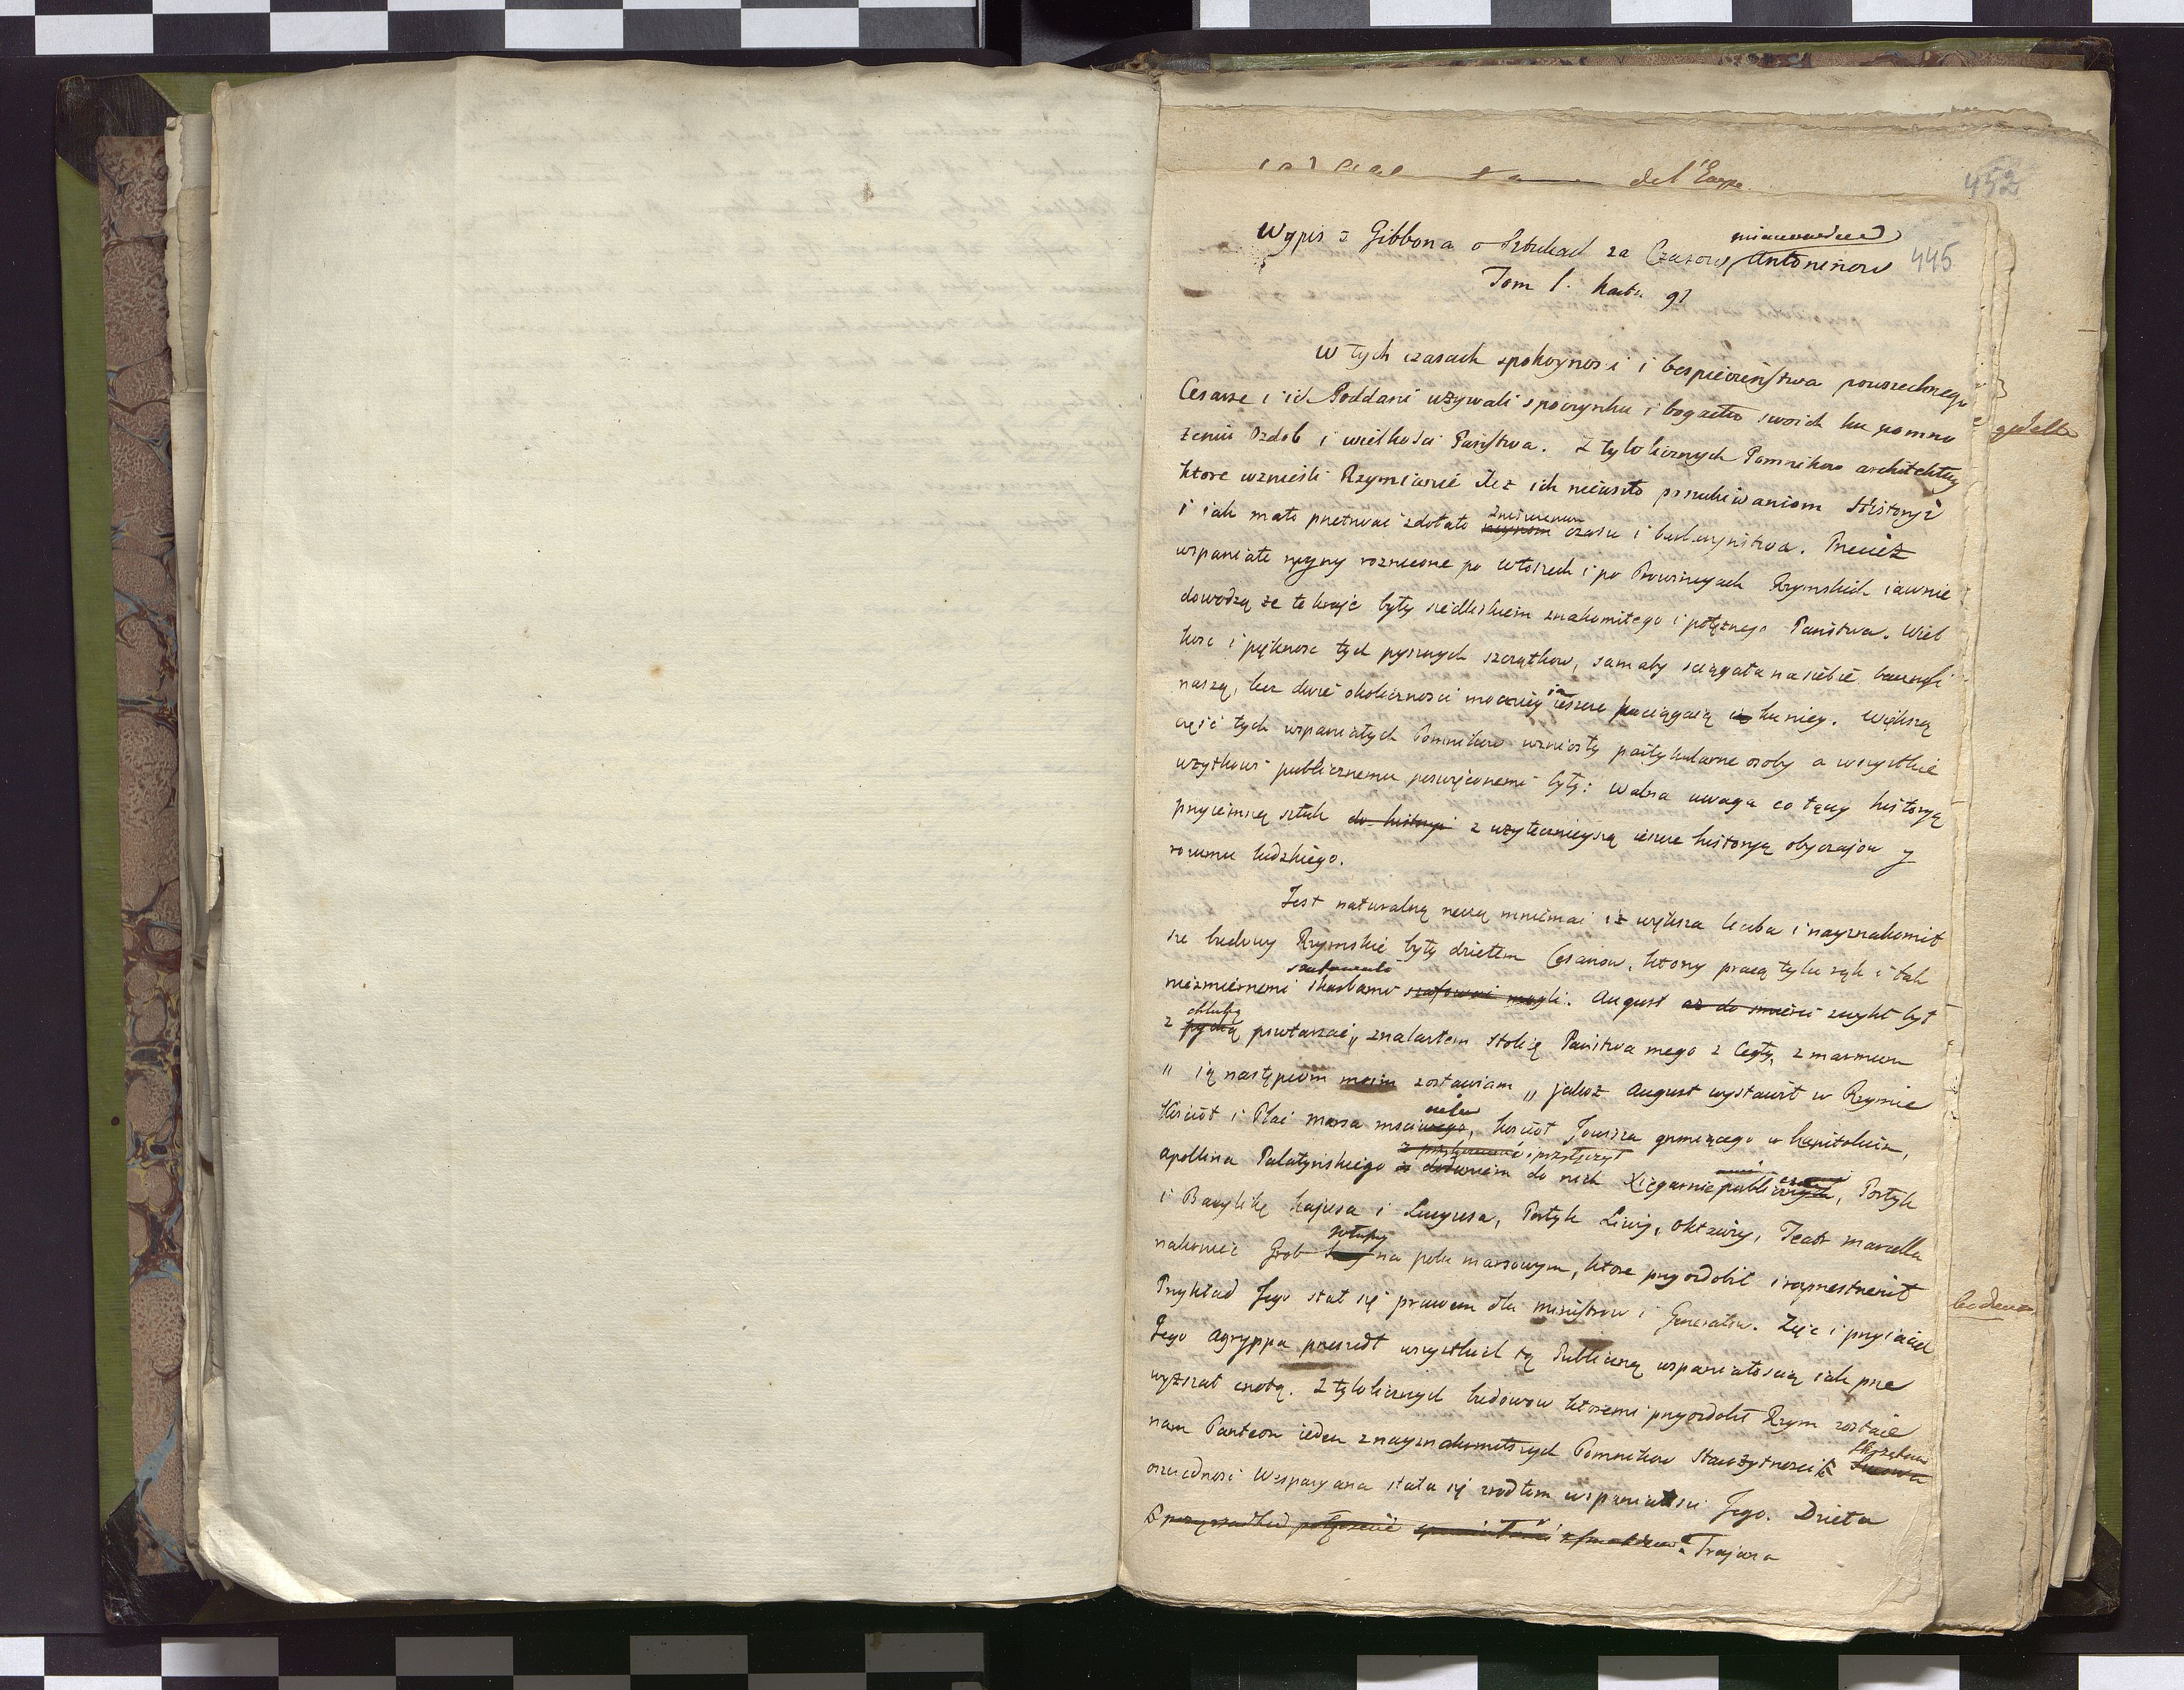 de l'Europe
452
Wypis z Gibbona o Sztukach za Czasow Antoninow
445
Tom 1. karta 91
W tych czasach spokoynosci i bespieczeństwa powszechnego
Cesarze i ich Poddani używali spoczynku i bogactw swoich ku pomno
żeniu ozdob i wielkości Państwa. Z tylo licznych Pomnikow architektury
ktore wznieśli Rzymianie ileż ich nieuszło poszukiwaniom Historyi
i iak mało przetrwać zdołało zniszczeniu czasu i barbarzyństwa. Przecież
wspaniałe ruyny rozrzucone po Włoszech i po Prowincyach Rzymskich iawnie
dowodzą że te kraje były siedliskiem znakomitego i potężnego Państwa. Wiel
kosc i pięknosc tych pysznych szczątkow, sama by sciągała na siebie baczność
naszą, lecz dwie okoliczności mocniey ią ieszcze pociągaią ku niey. Większą
część tych wspaniałych Pomnikow wzniosły partykularne osoby a wszystkie
użytkowi publicznemu poswięconemi były: Ważna uwaga co łączy historyą
przyiemną sztuk do historyi z użytecznieyszą ieszcze historyą obyczajow y
rozumu ludzkiego.
Jest naturalną rzeczą mniemać iż większa liczba i nayznakomit
sze budowy Rzymskie były dziełem Cesarzow, ktorzy pracą tylu rąk i tak
niezmiernemi skarbami szafować mogli. August aż do śmierci zwykł był
z chlubą pychą powtarzać „ znalazłem stolicę Państwa mego z Cegły, z marmuru
„ ią następcom moim zostawiam „ jakoż August wystawił w Rzymie
Kościoł i Plac Marsa msciwego, kościoł Jowisza grzmiącego w Kapitolium,
Apollina Palatyńskiego z dodaniem do nich Xięgarnie publicznych, Portyk
i Bazylikę Kajusa i Lucyusa, Portyk Liwij, Oktawij, Teatr Marcella
nakoniec Grob na polu marsowym, ktore przyozdobił i rozprzestrzenił
Przykład Jego stał się prawem dla ministrow i Generałow. Zięć i przyiaciel
Jego Agryppa przeszedł wszystkich tą Publiczną wspaniałoscią iak prze
wyższał cnotą. Z tylo licznych budowow ktoremi przyozdobił Rzym zostaie
nam Panteon ieden z nayznakomitszych Pomnikow Starożytnosci
oszczędnosc Wespazyana stała się zrodłem wspaniałosci Jego. Dzieła
Trajana